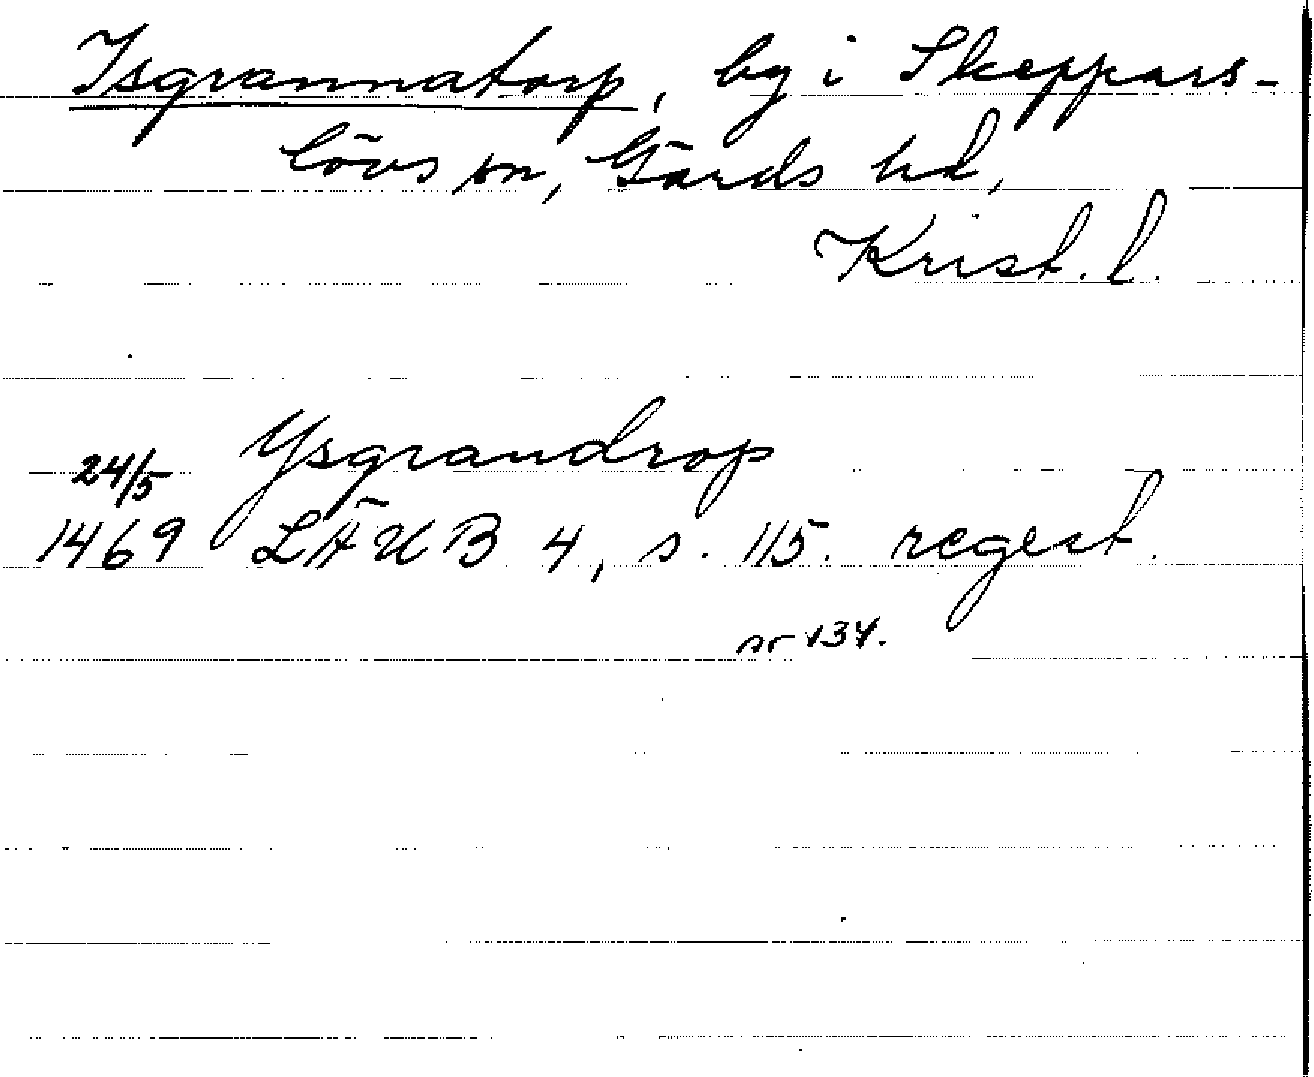 Isgrannatorp, by i Skeppars-
lövs sn, Gärds hd,
Krist. l.
24/5 Ysgrandrop
1469 LÄUB 4, s. 115. regest.
nr 134.